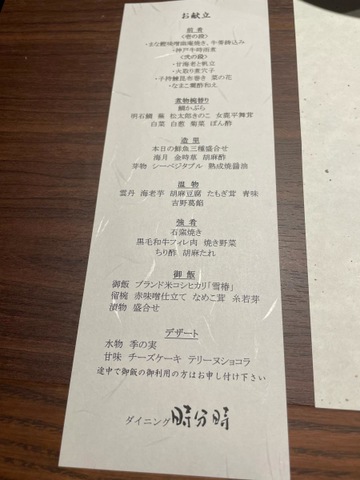 お献立
前肴
<壱の段>
・まな鰹味噌幽庵焼き、牛蒡鋳込み
・神戸牛時雨煮
<弐の段>
・甘海老と帆立
・火取り煮穴子
・子持鰊昆布巻き 菜の花
・なまこ霙酢和え
煮物椀替り
鯛かぶら
明石鯛 蕪 松太郎きのこ 女鹿平舞茸
白菜 白葱 菊菜 ぽん酢
造里
本日の鮮魚三種盛合せ
海月 金時草 胡麻酢
芽物 シーベジタブル 熟成焼醤油
温物
雲丹 海老芋 胡麻豆腐 たもぎ茸 青味
吉野葛餡
強肴
石窯焼き
黒毛和牛フィレ肉 焼き野菜
ちり酢 胡麻たれ
御飯
御飯 ブランド米コシヒカリ「雪椿」
留椀 赤味噌仕立て なめこ茸 糸若芽
漬物 盛合せ
デザート
水物 季の実
甘味 チーズケーキ テリーヌショコラ
途中で御飯の御利用の方はお申し付け下さい
ダイニング 時分時